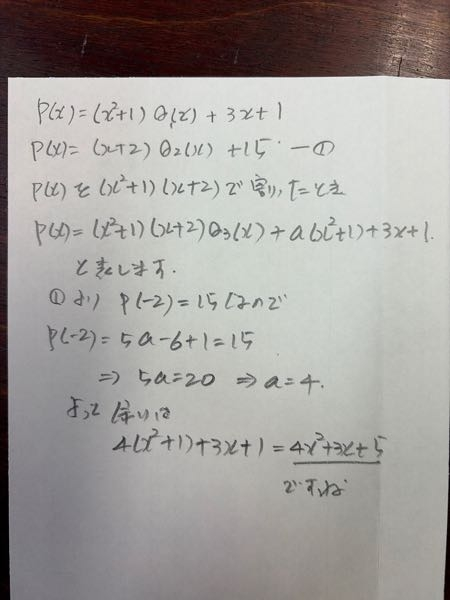 P(x)=(x²+1)Q₁(x)+3x+1
P(x)=(x+2)Q₂(x)+15 ー①
P(x)を(x²+1)(x+2)で割ったとき
P(x)=(x²+1)(x+2)Q₃(x)+a(x²+1)+3x+1.
と表します.
①より P(-2)=15なので
P(-2)=5a-6+1=15
⇒ 5a=20 ⇒ a=4.
よって余りは
4(x²+1)+3x+1=4x²+3x+5
ですね